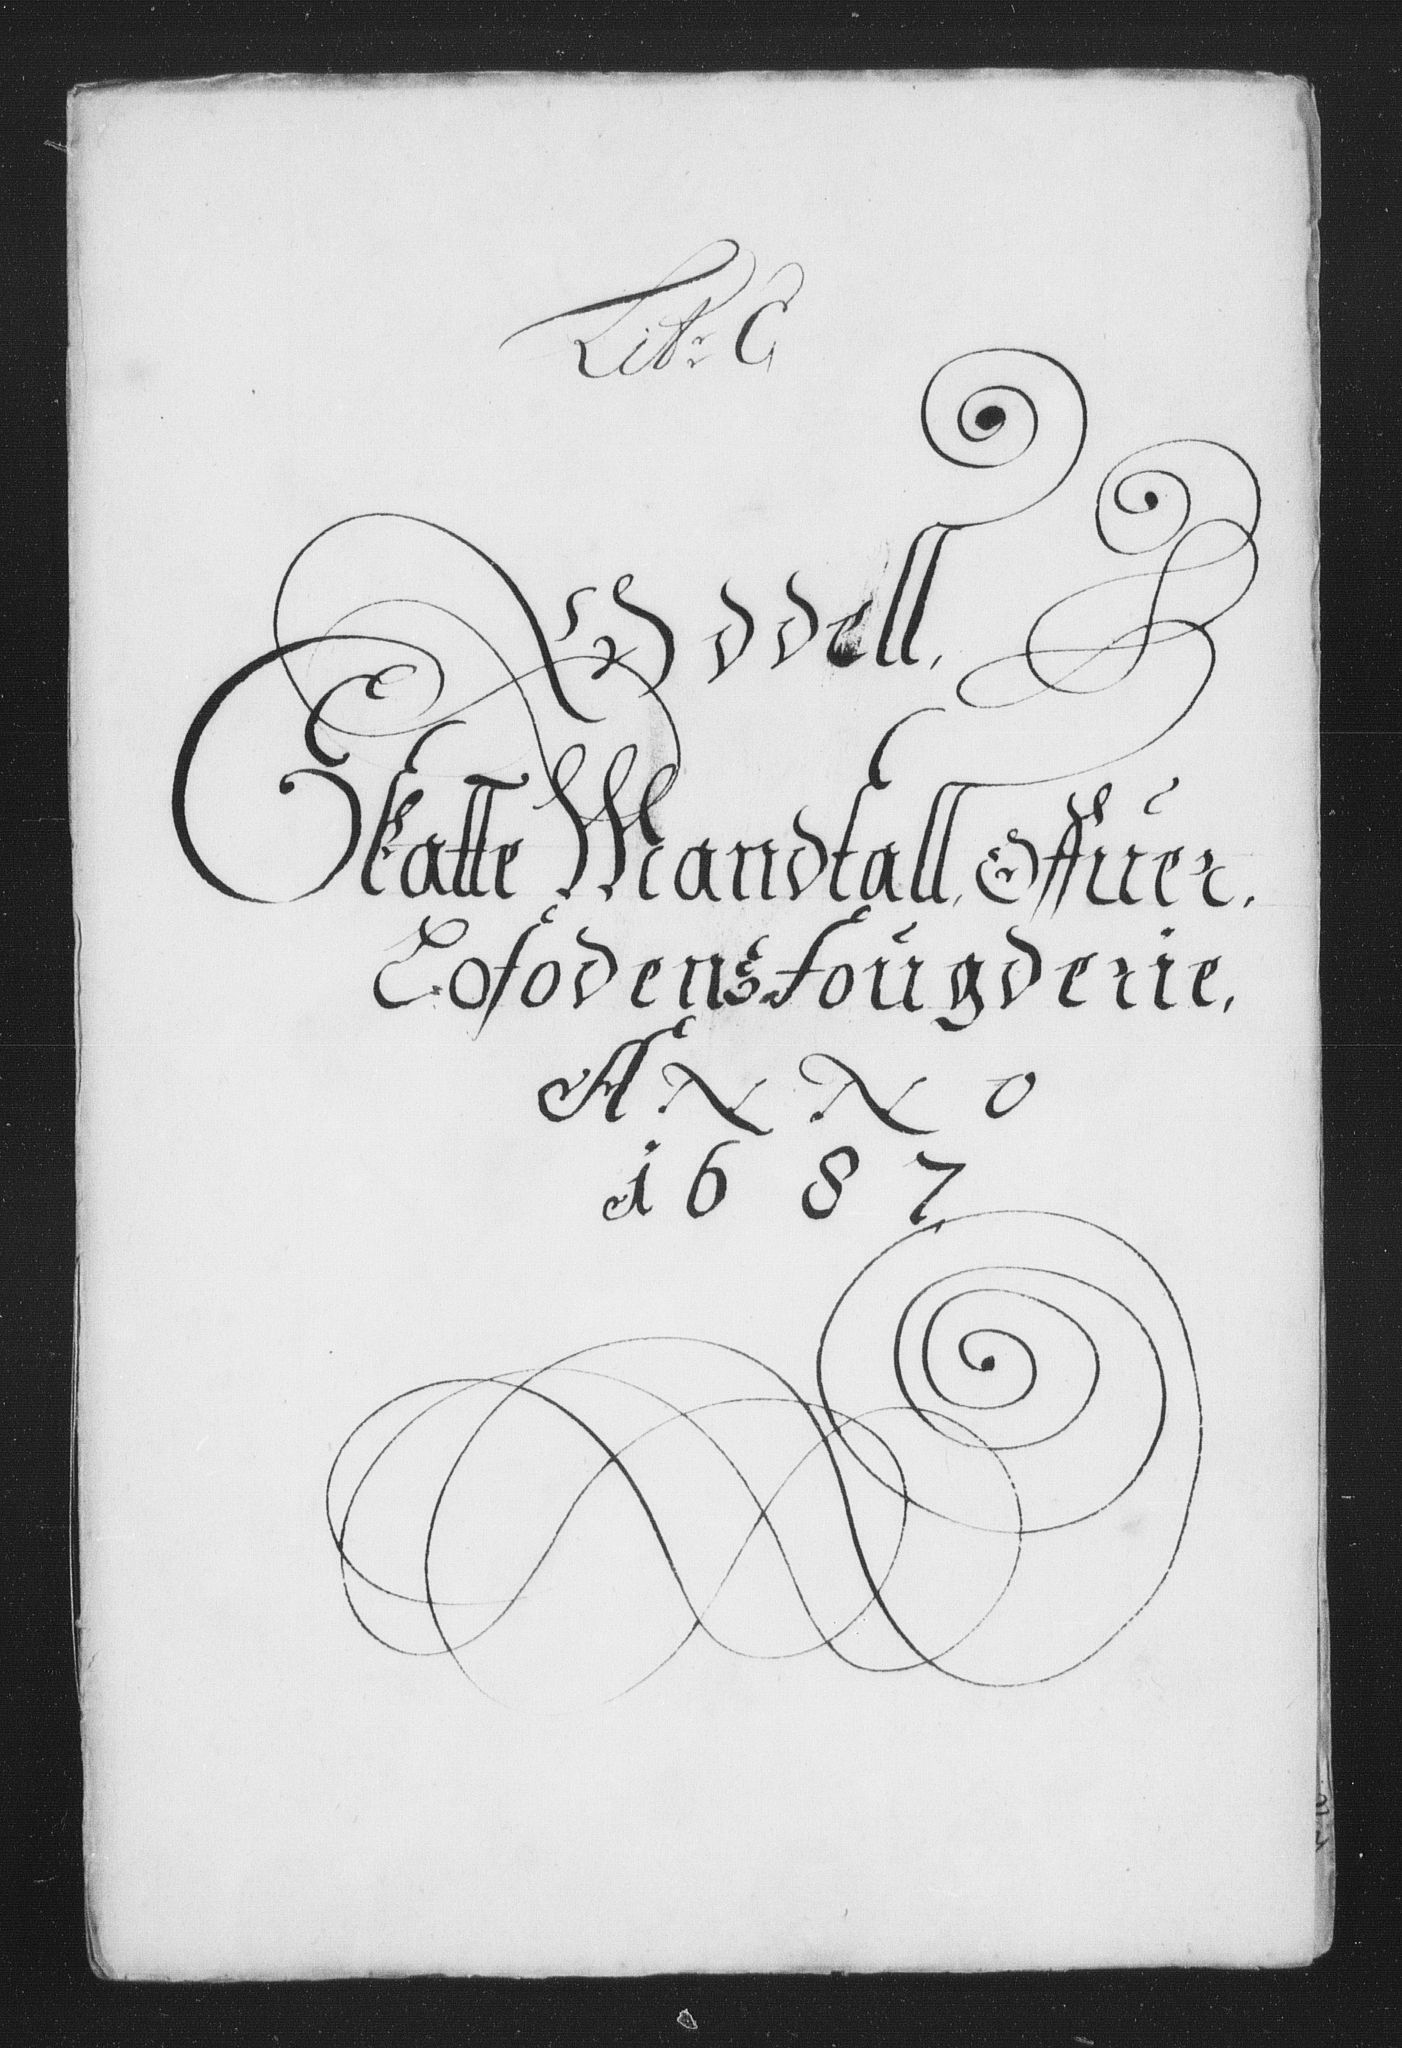 Litr C
Oddell.
Skatte Mandtall, Offuer.
Lofodens fougderie.
ANNO
1687